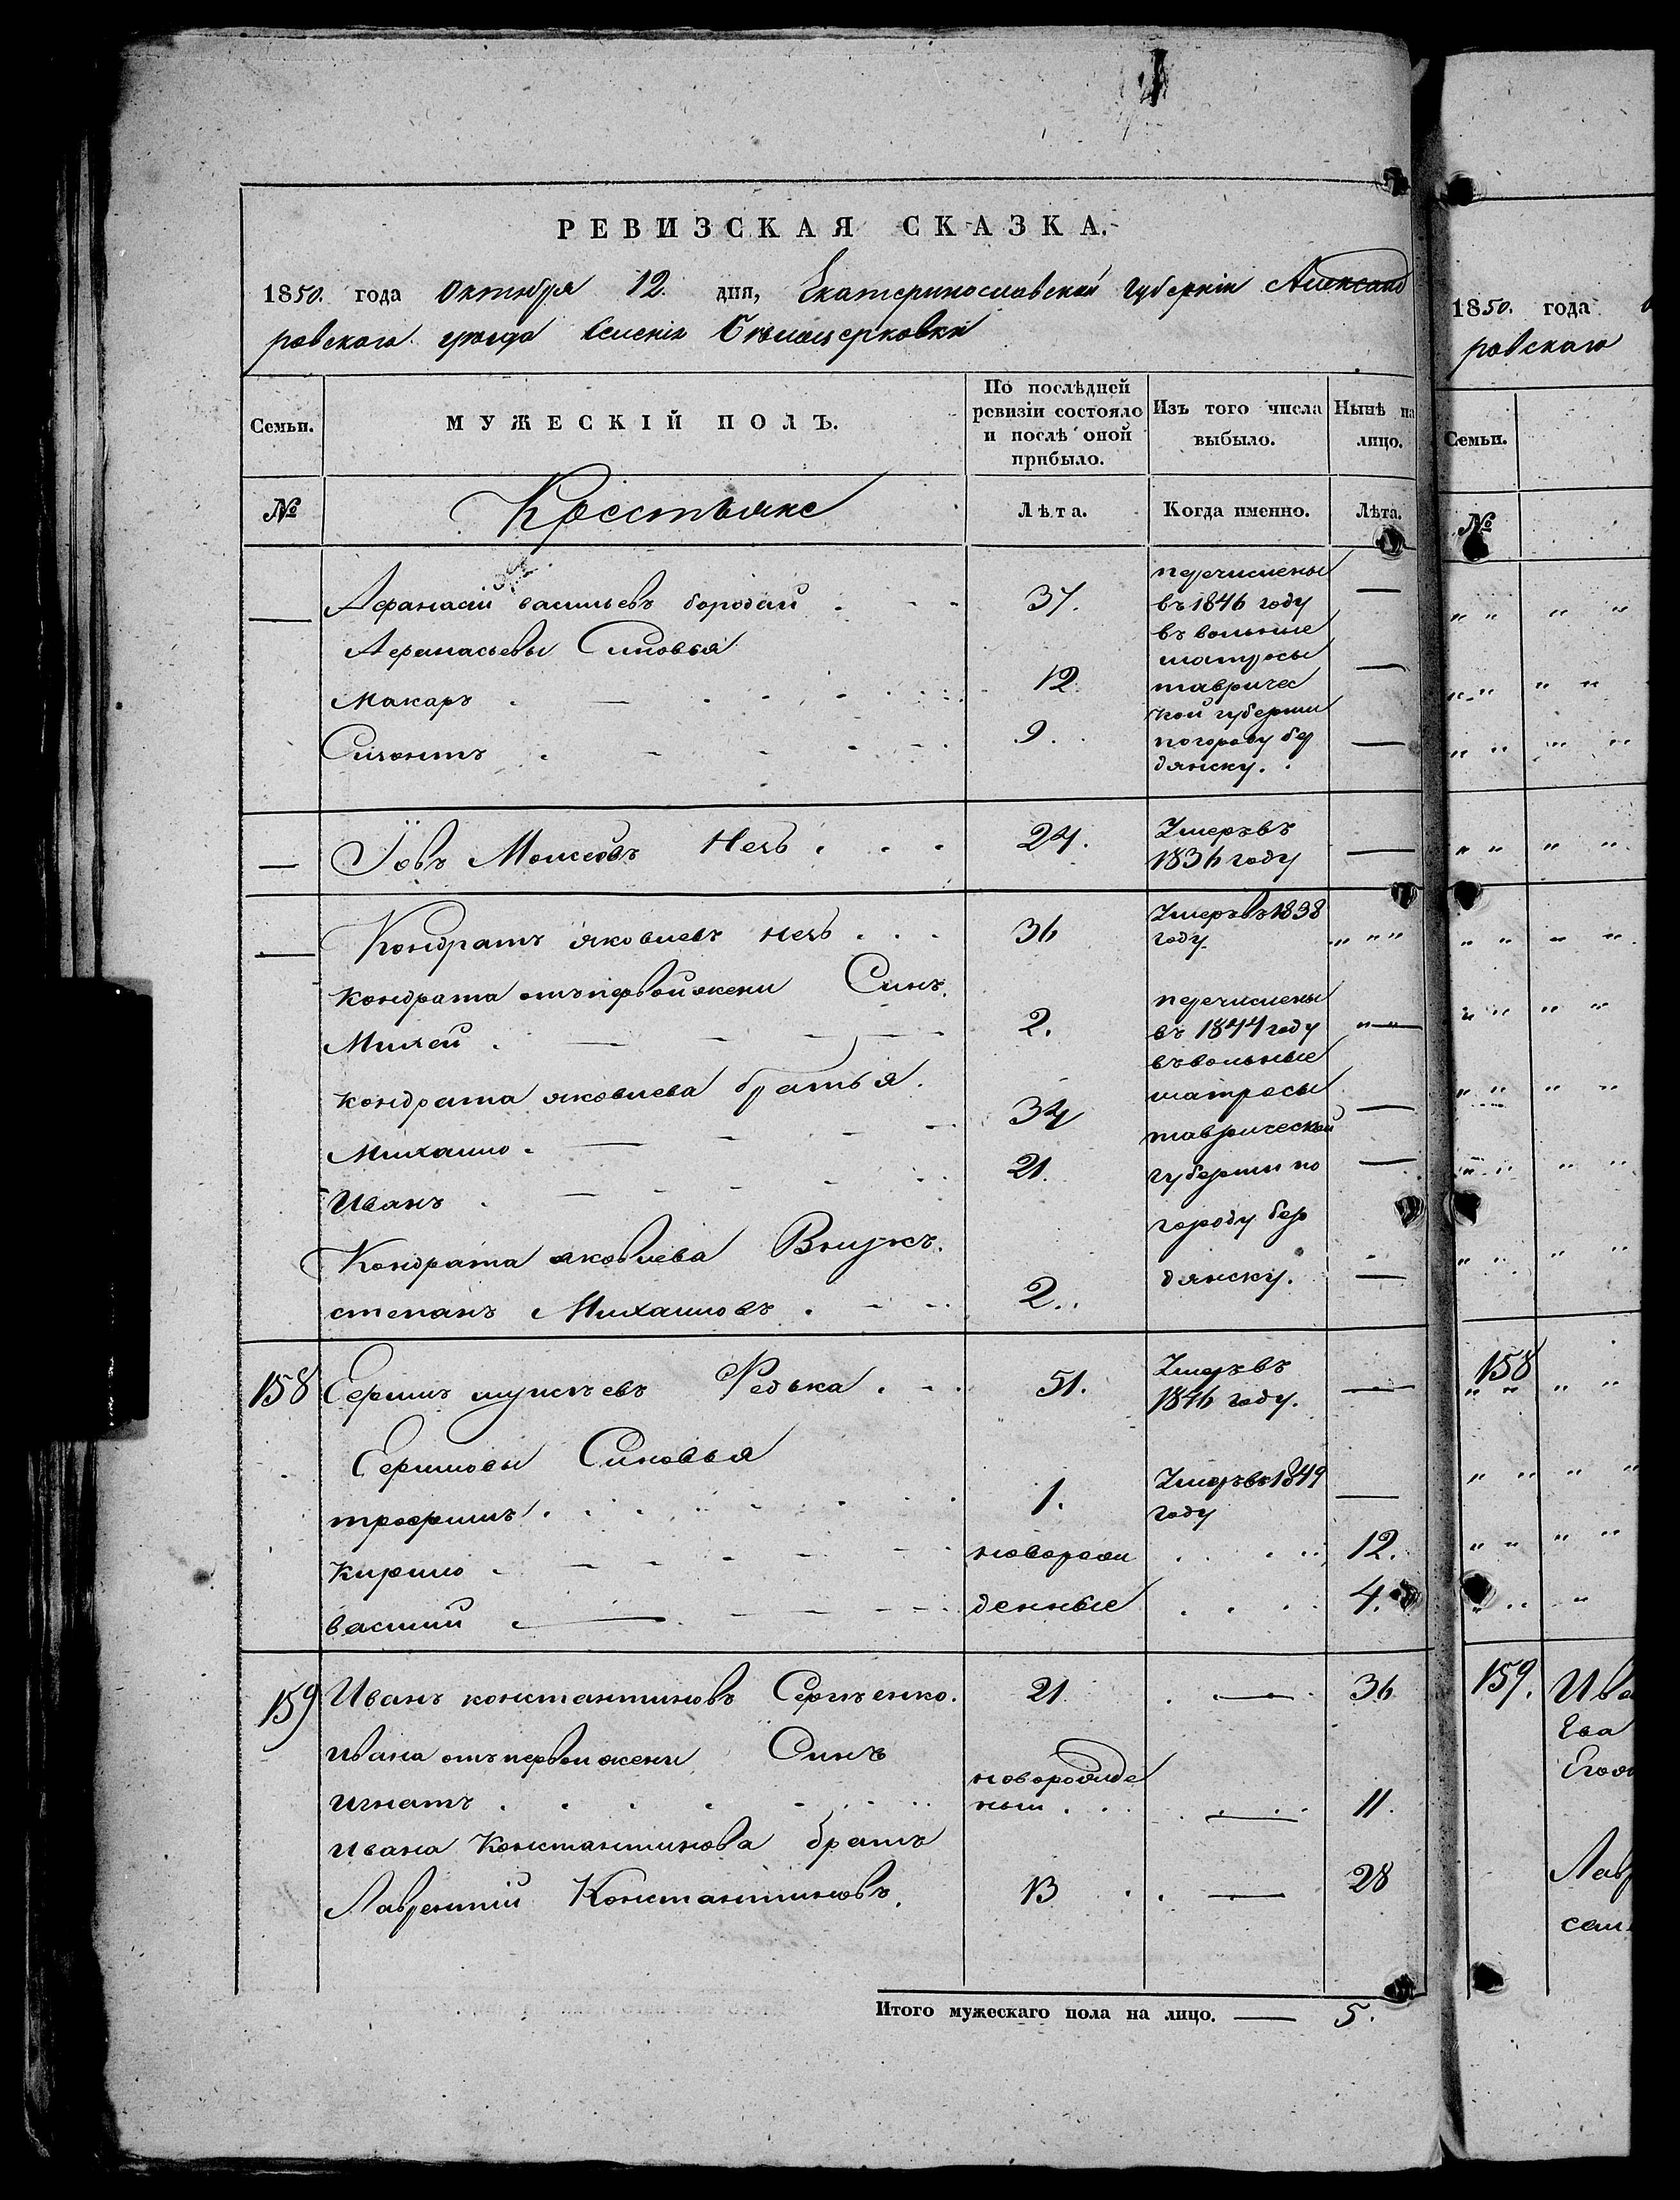 РЕВИЗСКАЯ СКАЗКА.
1850. года Октября 12. дня, Екатеринославской губерніи Александ
ровскаго уезда селенія Беломерковки
Семьи.
МУЖЕСКІЙ ПОЛЪ.
По послѣдней ревизіи состояло и послѣ оной прибыло.
Изъ того числа выбыло.
Нынѣ на лицо.
№
Крестьяне
Лѣта.
Когда именно.
Лѣта.
Афанасій васильевъ бородай 37.
перечислены
въ 1846 году
въ вольные
матросы
тавричес
кой губерніи
по городу бер
дянску.
Афанасьевы Синовья
Макаръ 12
9.
Іовъ Моисеевъ Нечъ 24.
Умеръ въ
1836 году
Кондратъ яковлевъ нечъ 36
Умеръ въ 1838
году.
Кондрата отъ первой жени Синъ.
Михей 2.
перечислены
въ 1844 году
въ вольные
матросы
таврической
губерніи по
городу бер
дянску.
кондрата яковлева братья.
Михаило 34
Иванъ 21.
Кондрата яковлева Внукъ.
степанъ Михаиловъ 2.
158 Ефимъ Редька 51.
Умеръ въ
1846 году.
Ефимовы Синовья
трофимъ 1.
Умеръ въ 1849
году
Кирило новорож 12.
василий денные 4.
159 Иванъ константиновъ Сергѣенко. 21 36
ивана отъ первои жени Синъ
игнатъ новорожде
ныи 11.
ивана Константинова братъ
Лаврентій Константиновъ. 13 28
Итого мужескаго пола на лицо. — 5.
1850. года
ровскаго
Семьи.
№
158
159. Ива
Ева
Лавр